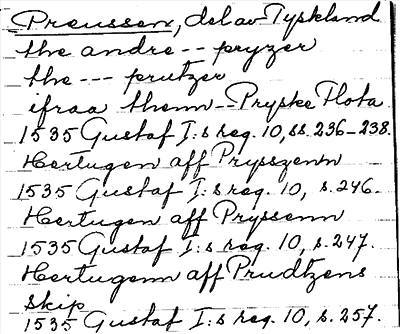 Preussen, del av Tyskland
the andre -- pryzer
the --- prutzer
ifraa thenn -- Pryske Flota
1535 Gustaf I:s reg. 10, ss. 236-238.
Hertugen aff Prysszenn
1535 Gustaf I:s reg. 10, s. 246.
Hertugen aff Pryssenn
1535 Gustaf I:s reg. 10, s. 247.
Hertugenn aff Prudtzens
skip
1535 Gustaf I:s reg. 10, s. 257.